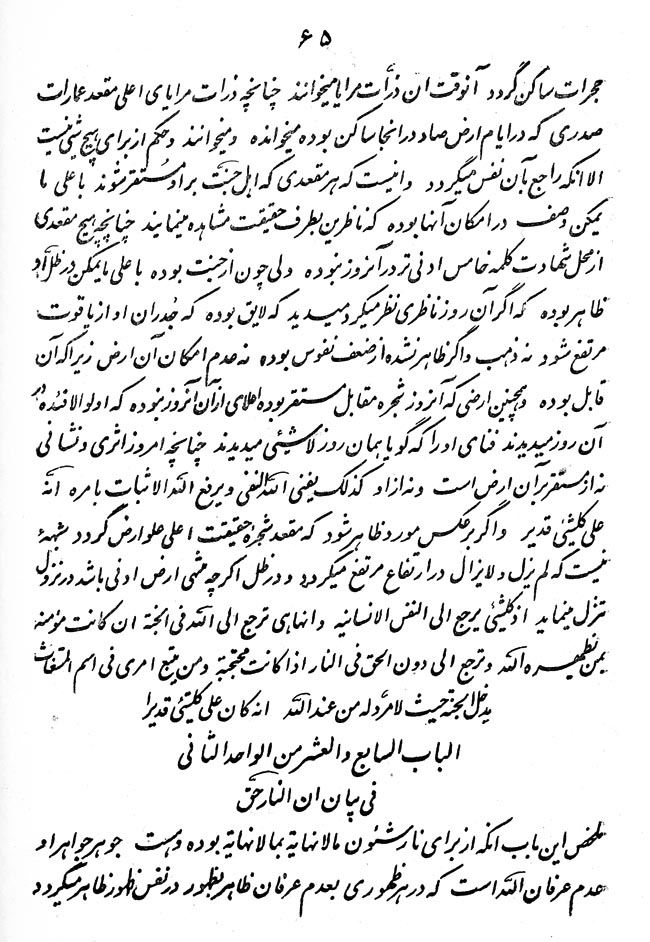 ۶۵
حجرات ساکن گردد آنوقت ان ذرّات مرایا میخوانند چنانچه ذرات مرایای اعلی مقعد عمارات
صدری که در ایام ارض صاد در انجا ساکن بوده میخوانده ومیخوانند وحکم از برای هیچ شیئی نیست
الا انکه راجع بآن نفس میگردد وانیست که هر مقعدی که اهل جنت براو مستقر میشوند باعلی ما
یمکن وصف در امکان آنها بوده که ناظرین بطرف حقیقت مشاهده مینمایند چنانچه هیچ مقعدی
از محل شهادت کلمه خامس ادنی تر در آنروز نبوده ولی چون از جنت بوده باعلی ما یمکن در ظل او
ظاهر بوده که اگر آن روز ناظری نظر میکرد میدید که لایق بوده که جُدران او از یاقوت
مرتفع شود نه ذهب واگر ظاهر نشده از ضعف نفوس بوده نه عدم امکان آن ارض زیرا که آن
قابل بوده وهمچنین ارضی که آنروز شجره مقابل مستقر بوده اعلای از آن آنروز نبوده که اولو الافئده در
آن روز میدیدند فنای او را که گویا همان روز لاشیئی میدیدند چنانچه امروز اثری ونشانی
نه از مستقر بران ارض است ونه از او کذلک یفنی الله النفی ویرفع الله الاثبات بامره انه
علی کلشیئ قدیر واگر بر عکس مورد ظاهر شود که مقعد شجرهٔ حقیقت اعلی علو ارض گردد شبههٔ
نیست که لم یزل ولا یزال در ارتفاع مرتفع میگردد ودر ظل اگرچه منتهی ارض ادنی باشد در نزول
تنزل مینماید اذ کلشیئ یرجع الی النفس الانسانیه وانها هی ترجع الی الله فی الجنة ان کانت مؤمنة
بمن یظهره الله وترجع الی دون الحق فی النار اذا کانت محتجبة ومن یتبع امری فی اسم المستغاث
یدخل الجنة حیث لا مردّ له من عند الله انه کان علی کلشیئ قدیرا
الباب السابع والعشر من الواحد الثانی
فی بیان ان النار حق
ملخص این باب انکه از برای نار شئون مالانهایة بمالانهایة بوده وهست جوهر جواهر او
عدم عرفان الله است که در هر ظهوری بعدم عرفان ظاهر بظهور در نفس ظهور ظاهر میگردد